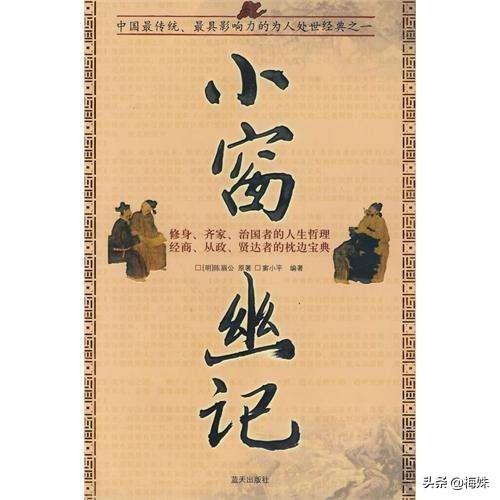 中国最传统、最具影响力的为人处世经典之一
小窗幽记
修身、齐家、治国者的人生哲理
经商、从政、贤达者的枕边宝典
□[明]陈眉公 原著 □窦小平 编著
蓝天出版社
头条 @梅姝